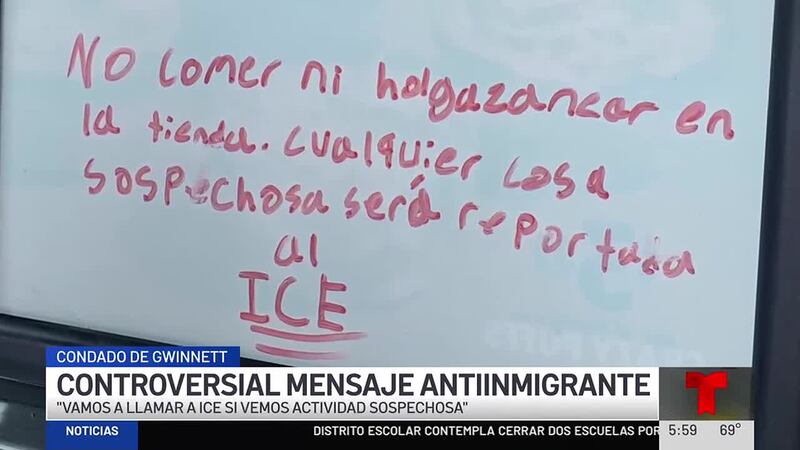 No comer ni holgazanear en
la tienda. cualquier cosa
sospechosa será reportada
al
ICE
CONDADO DE GWINNETT
CONTROVERSIAL MENSAJE ANTIINMIGRANTE
"VAMOS A LLAMAR A ICE SI VEMOS ACTIVIDAD SOSPECHOSA"
NOTICIAS
DISTRITO ESCOLAR CONTEMPLA CERRAR DOS ESCUELAS POR
5:59 69°